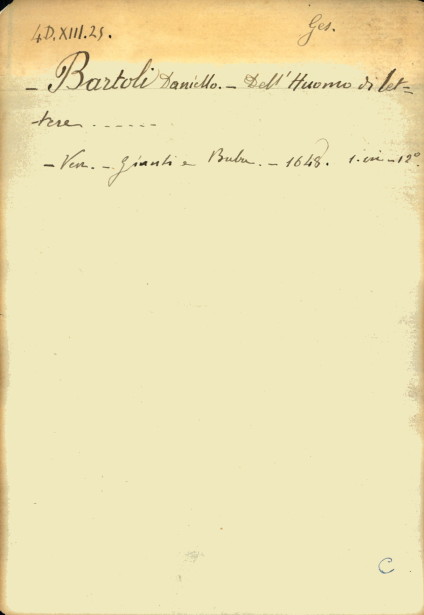 4.D.XIII.25.
Ges.
- Bartoli Daniello. - Dell' Huomo di let-
tere ......
- Ven. - Giunti e Baba. - 1648. 1. in - 12°.
C